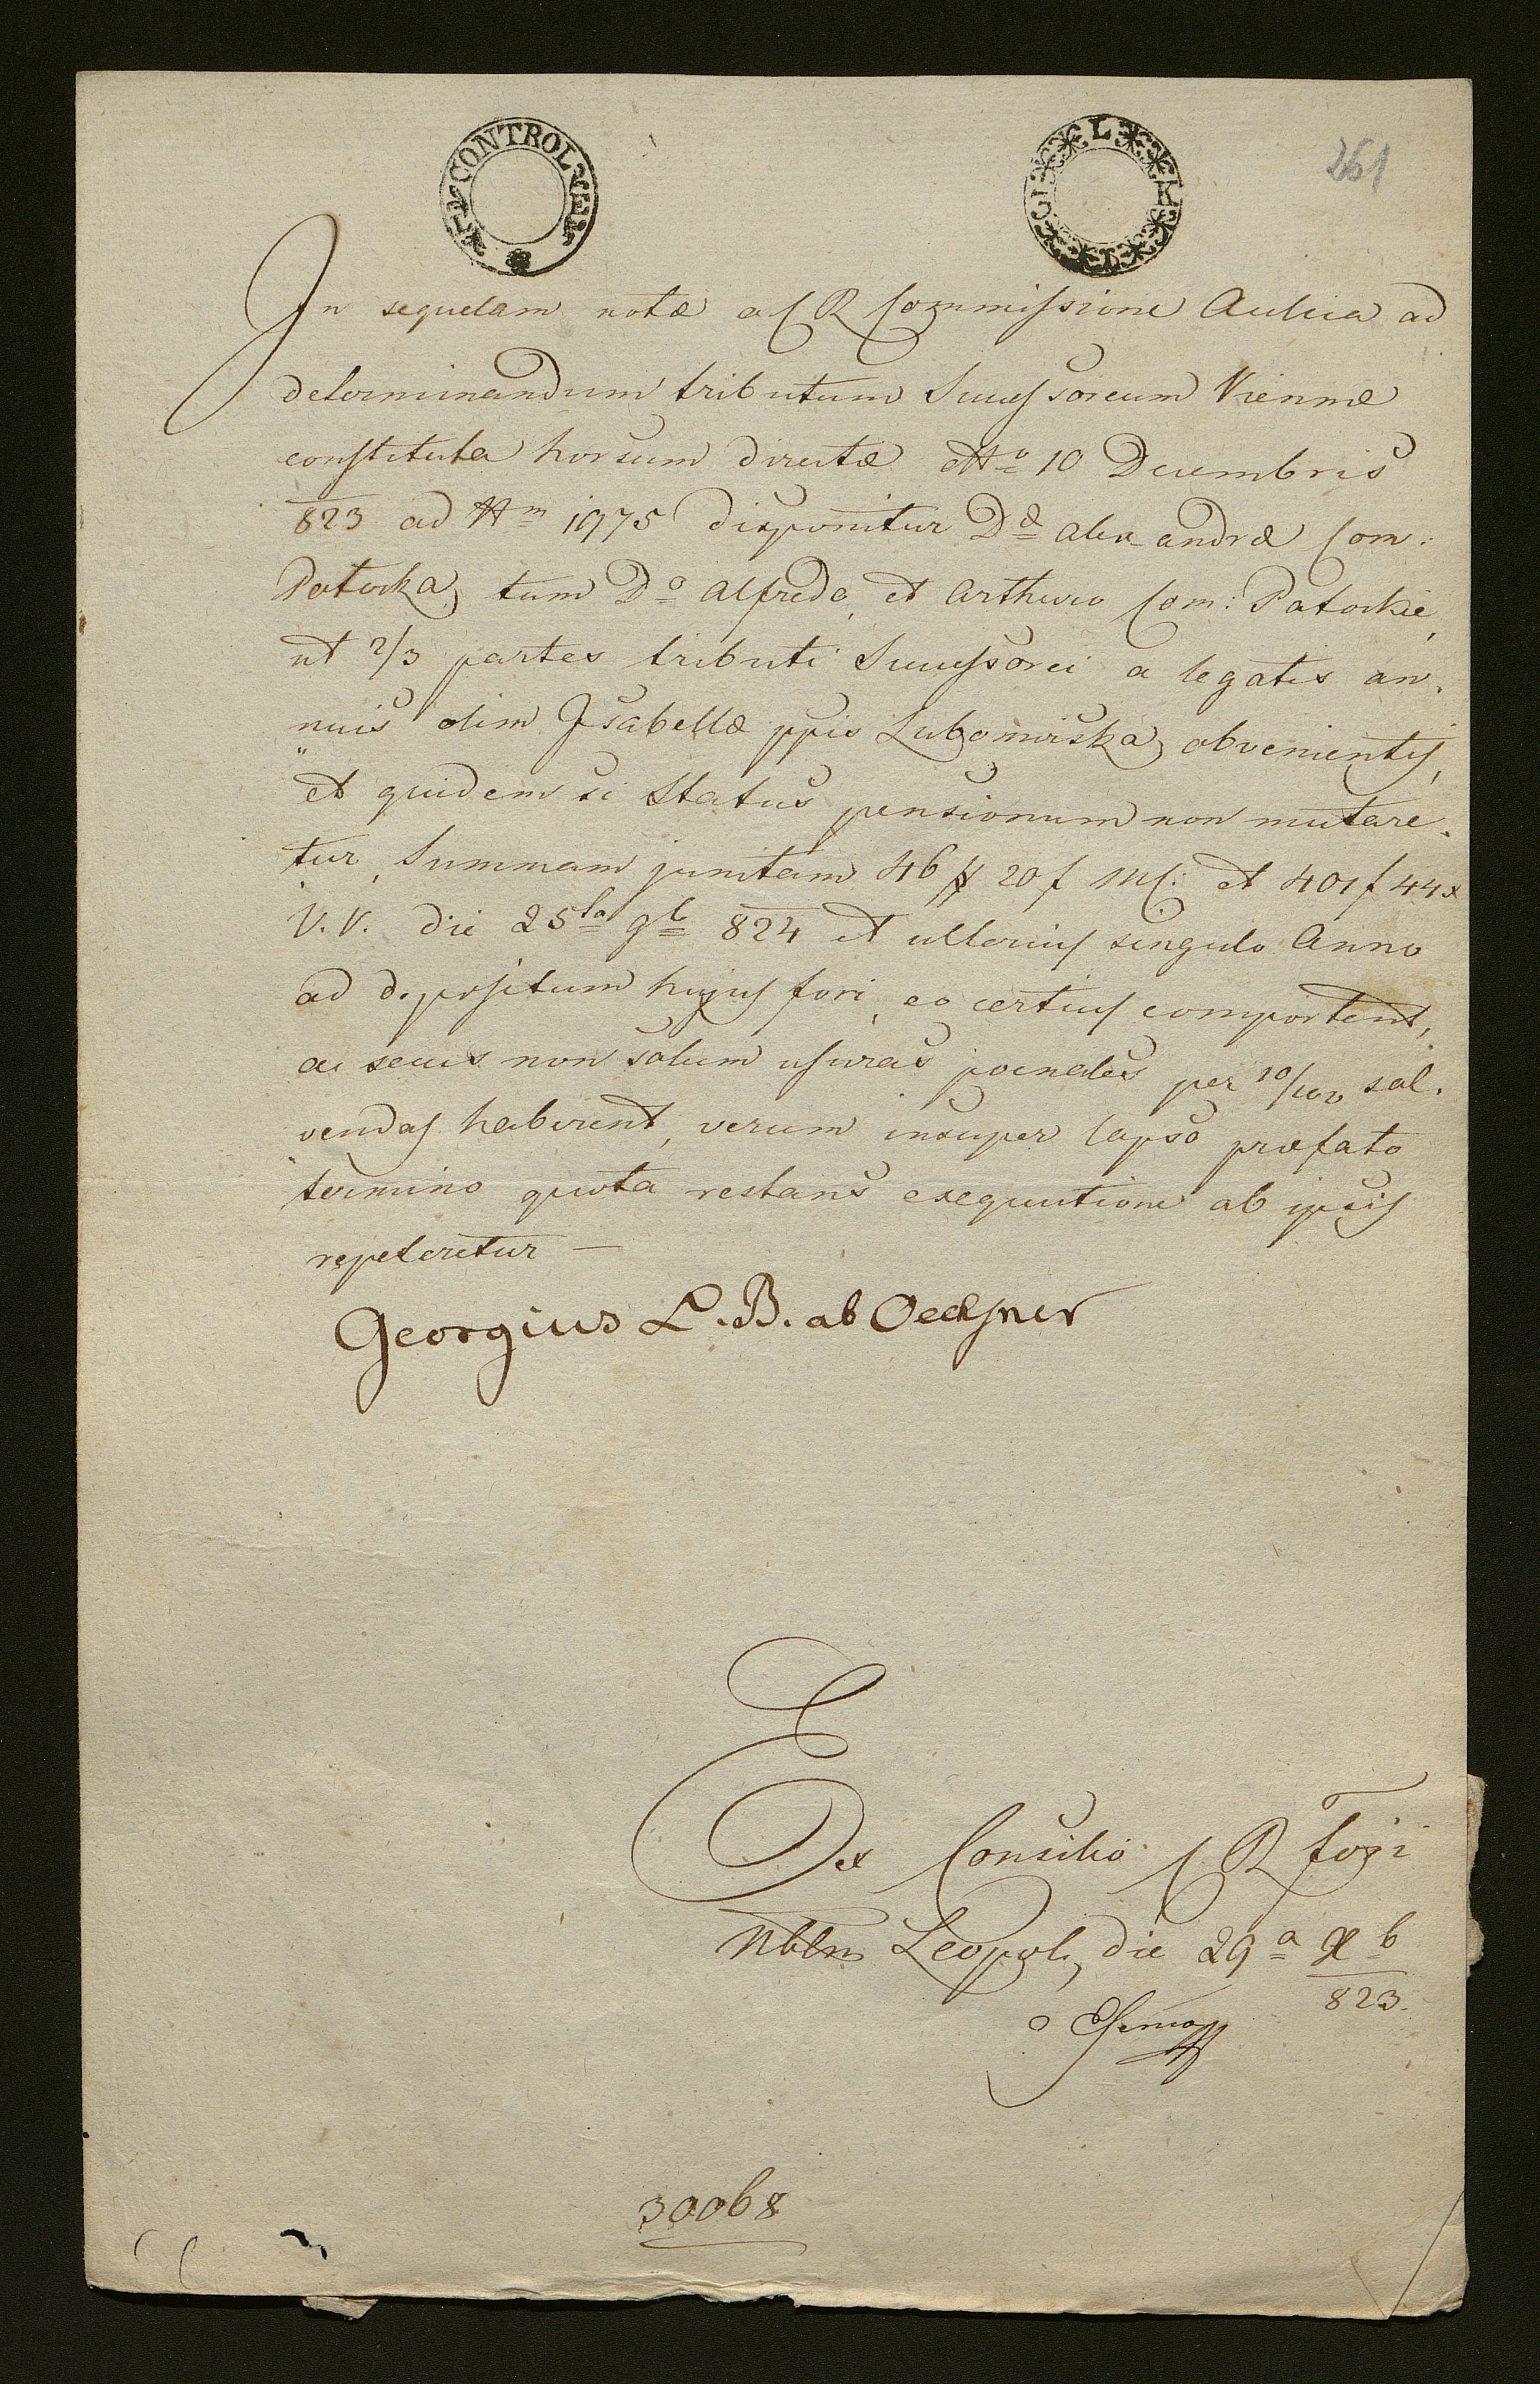 CONTROL
261
In sequelam notæ a C R Commissione Aulica ad
determinandum tributum Successoreum Viennæ
constituta horsum directæ dtto 10 Decembris
823 ad Nm 1975 disponitur Dæ Alexandræ Com:
Potocka, tum Do Alfredo, et Arthuro Com: Potockie,
ut 2/3 partes tributi Successorei a legatis an,
nuis olim Isabellæ ppis Lubomirska, obvenientis,
et quidem si Status pensionum non mutare,
tur, Summam junctam 46 # 20 f MC: et 401 f 44 x
V. V. die 25ta 9b 824 et ulterius singulo Anno
ad depositum hujus fori, eo certius comportent,
ac secus non solum usuras poenales per 10/100 sol,
vendas haberent, verum insuper lapso præfato
termino quota restans exequutione ab ipsis
repeteretur —
Georgius L. B. ab Oechsner
Ex Consilio C R Fori
Nblm Leopol, die 29a Xb
823.
30068